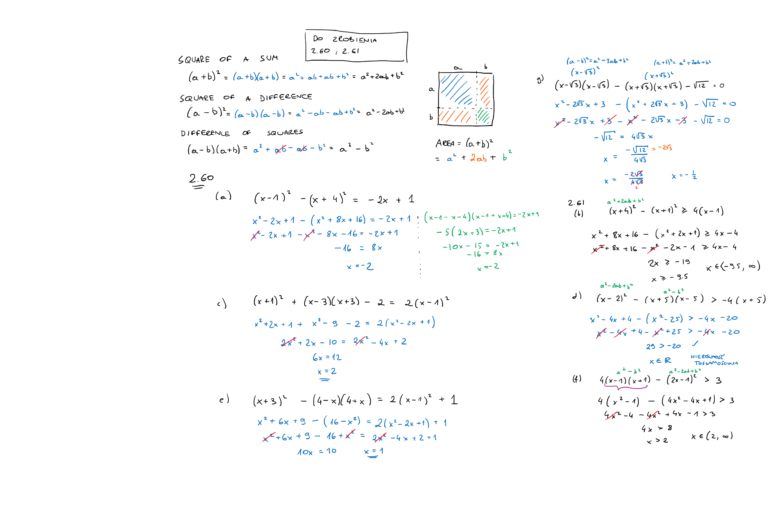 DO ZROBIENIA
2.60 ; 2.61
SQUARE OF A SUM
(a+b)² = (a+b)(a+b) = a²+ab+ab+b² = a²+2ab+b²
SQUARE OF A DIFFERENCE
(a-b)² = (a-b)(a-b) = a²-ab-ab+b² = a²-2ab+b²
DIFFERENCE OF SQUARES
(a-b)(a+b) = a²+ab-ab-b² = a²-b²
a b
a
b
AREA = (a+b)²
= a² + 2ab + b²
2.60
(a) (x-1)² - (x+4)² = -2x + 1
x²-2x+1 - (x²+8x+16) = -2x+1
x²-2x+1-x²-8x-16 = -2x+1
-16 = 8x
x = -2
(x-1-x-4)(x-1+x+4) = -2x+1
-5(2x+3) = -2x+1
-10x-15 = -2x+1
-16 = 8x
x = -2
c) (x+1)² + (x-3)(x+3) - 2 = 2(x-1)²
x²+2x+1 + x²-9-2 = 2(x²-2x+1)
2x²+2x-10 = 2x²-4x+2
6x = 12
x = 2
e) (x+3)² - (4-x)(4+x) = 2(x-1)² + 1
x²+6x+9 - (16-x²) = 2(x²-2x+1)+1
x²+6x+9-16+x² = 2x²-4x+2+1
10x = 10 x = 1
(a-b)² = a²-2ab+b² (a+b)² = a²+2ab+b²
(x-√3)² (x+√3)²
g) (x-√3)(x-√3) - (x+√3)(x+√3) - √12 = 0
x²-2√3x+3 - (x²+2√3x+3) - √12 = 0
x²-2√3x+3-x²-2√3x-3-√12 = 0
-√12 = 4√3x
x = -√12/4√3 = -2√3
x = -2√3/4√3 2 x = -1/2
2.61
a²+2ab+b²
(b) (x+4)² - (x+1)² ≥ 4(x-1)
x²+8x+16 - (x²+2x+1) ≥ 4x-4
x²+8x+16-x²-2x-1 ≥ 4x-4
2x ≥ -19
x ≥ -9.5 x∈(-9.5, ∞)
a²-2ab+b² a²-b²
d) (x-2)² - (x+5)(x-5) > -4(x+5)
x²-4x+4 - (x²-25) > -4x-20
x²-4x+4-x²+25 > -4x-20
29 > -20 ✓
x∈ℝ NIERÓWNOŚĆ TOŻSAMOŚCIOWA
a²-b² a²-2ab+b²
(f) 4(x-1)(x+1) - (2x-1)² > 3
4(x²-1) - (4x²-4x+1) > 3
4x²-4-4x²+4x-1 > 3
4x > 8
x > 2 x∈(2, ∞)